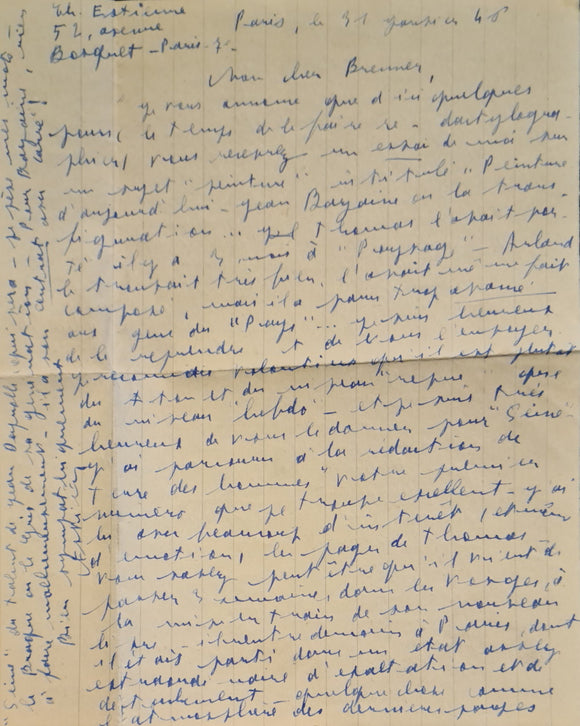 Ch. Estienne
52, avenue
Bosquet - Paris-7e
Paris, le 31 janvier 48
Mon cher Brenner,
je vous annonce que d'ici quelques
jours, le temps de le faire re-dactylogra-
phier, vous recevrez un essai de moi sur
un sujet "peinture" intitulé "Peinture
d'aujourd'hui - Jean Bazaine ou la trans-
figuration... Thomas l'avait por-
té il y a 3 mois à "Paysage" - Arland
le trouvait très bien, l'avait même fait
composer, mais il a paru trop avancé
aux gens du "Pays"... je suis heureux
de le reprendre et de vous l'envoyer.
volontiers qu'il est plutôt
du ton et du niveau "revue" que
du niveau "hebdo" - et je suis très
heureux de vous le donner pour "Seine"
J'ai parcouru à la rédaction de
"Terre des hommes" votre premier
numéro que je trouve excellent - j'ai
lu avec beaucoup d'intérêt, et même
d'émotion, les pages de Thomas -
Vous savez peut-être qu'il vient de
passer 3 semaines dans les Vosges, à
la mise en train de son nouveau
livre - il rentre demain à Paris, dont
il était parti dans un état assez
extraordinaire d'exaltation et de
- quelque chose comme
l'atmosphère des dernières pages
"Seine" du talent de Jean Bazaine qui sera - je pèse mes mots -
le Braque ou le Gris de sa génération - Pour Bazaine, rien
à faire malheureusement - il a son contrat avec Carré!
Bien sympathiquement
Estienne